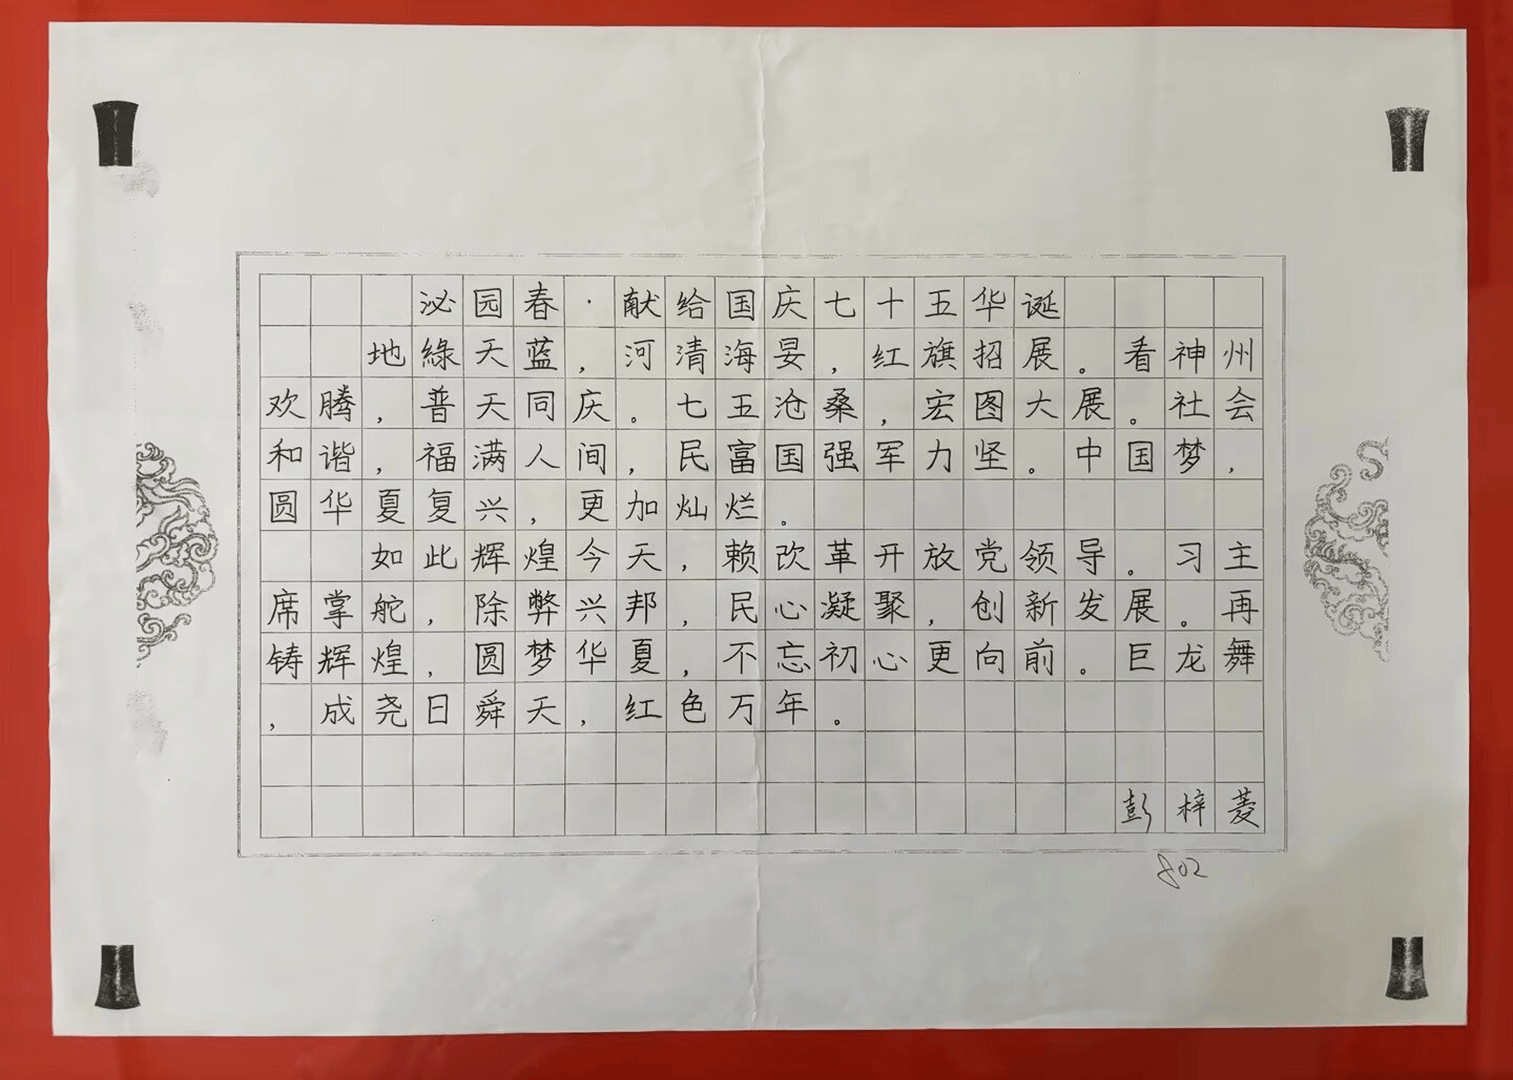 泌园春·献给国庆七十五华诞
地綠天蓝，河清海晏，红旗招展。看神州
欢腾，普天同庆。七五沧桑，宏图大展。社会
和谐，福满人间，民富国强军力坚。中国梦，
圆华夏复兴，更加灿烂。
如此辉煌今天，赖改革开放党领导。习主
席掌舵，除弊兴邦，民心凝聚，创新发展。再
铸辉煌，圆梦华夏，不忘初心更向前。巨龙舞
，成尧日舜天，红色万年。
彭梓菱
802